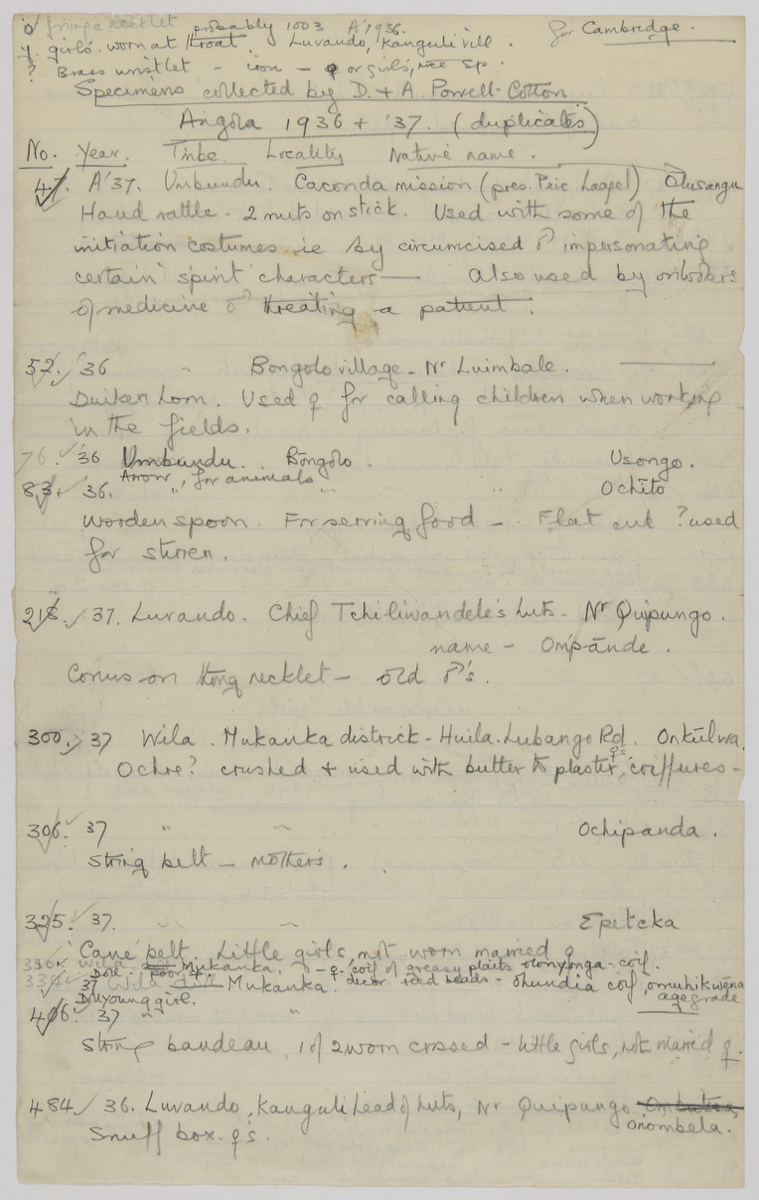 fringe necklet probably 1003 A'1936.
for Cambridge.
girls' worn at throat. Luvando, Kanguli vill.
? Brass wristlet - iron - ♀ or girls,
Specimens collected by D. & A Powell-Cotton
Angola 1936 & '37. (duplicates)
No. Year. Tribe Locality Native name.
47. A'37. Umbundu. Caconda mission (pres. Père Laagel) Olusangu
Hand rattle - 2 nuts on stick. Used with some of the
initiation costumes ie by circumcised ♂ impersonating
certain 'spirit' characters — Also used by onlookers
of medicine ♂ treating a patient.
52. '36 " Bongolo village - Nr Luimbale. —
Duiker horn. Used ♀ for calling children when working
in the fields.
76. '36 Umbundu. Bongolo. Usongo.
Arrow, for animals
83. '36. " " " Ochito
Wooden spoon. For serving food - Flat end ? used
for stirren.
218. 37. Luvando. Chief Tchiliwandele's huts - Nr Quipungo.
name - Ompānde.
Conus on thong necklet - old ♂'s.
300. 37 Wila. Mukanka district - Huila-Lubango Rd. Onkūlwa.
Ochre? crushed & used with butter to plaster ♀'s coiffures -
306. 37 " " Ochipanda.
String belt - mothers.
325. 37. " " Epetcka
'Cane' belt. Little girls, not worn married ♀
330. Wila Mukanka, - ♀ coif of greasy plaits olonyonga - coif.
Doll.
331. 37 Wila Mukanka. decor reed beads - ohundia coif, omuhikwēna
Doll young girl. age grade
406. 37 " "
String bandeau, 1 of 2 worn crossed - little girls, not married ♀.
484 36. Luvando, Kanguli head of huts, Nr Quipungo
Onombela.
Snuff box. ♀'s.